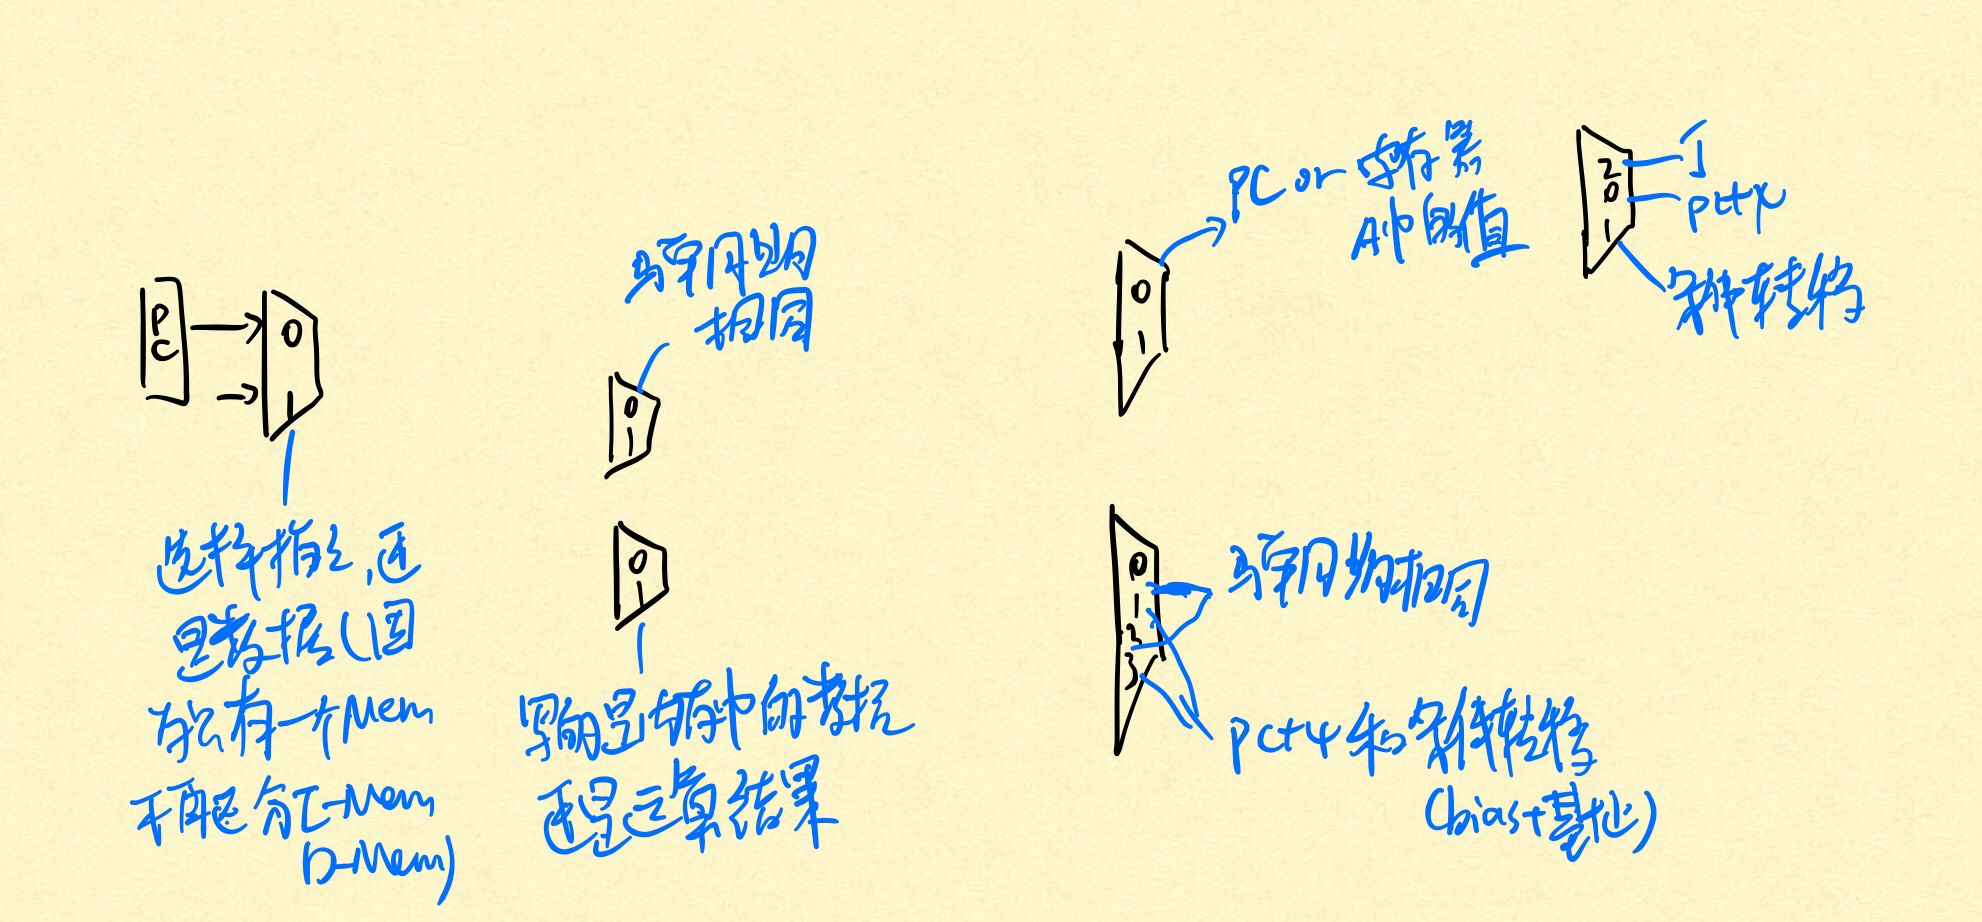 PC
0
1
选择指令,还
是数据(因
为只有一个Mem
不再区分I-Mem
D-Mem)
与单周期
相同
0
1
0
1
写的是内存中的数据
还是运算结果
PC or 寄存器
A中的值
0
1
2
0
1
J
条件转移
0
1
2
3
与单周期相同
PC+4和条件转移
(bias+基址)